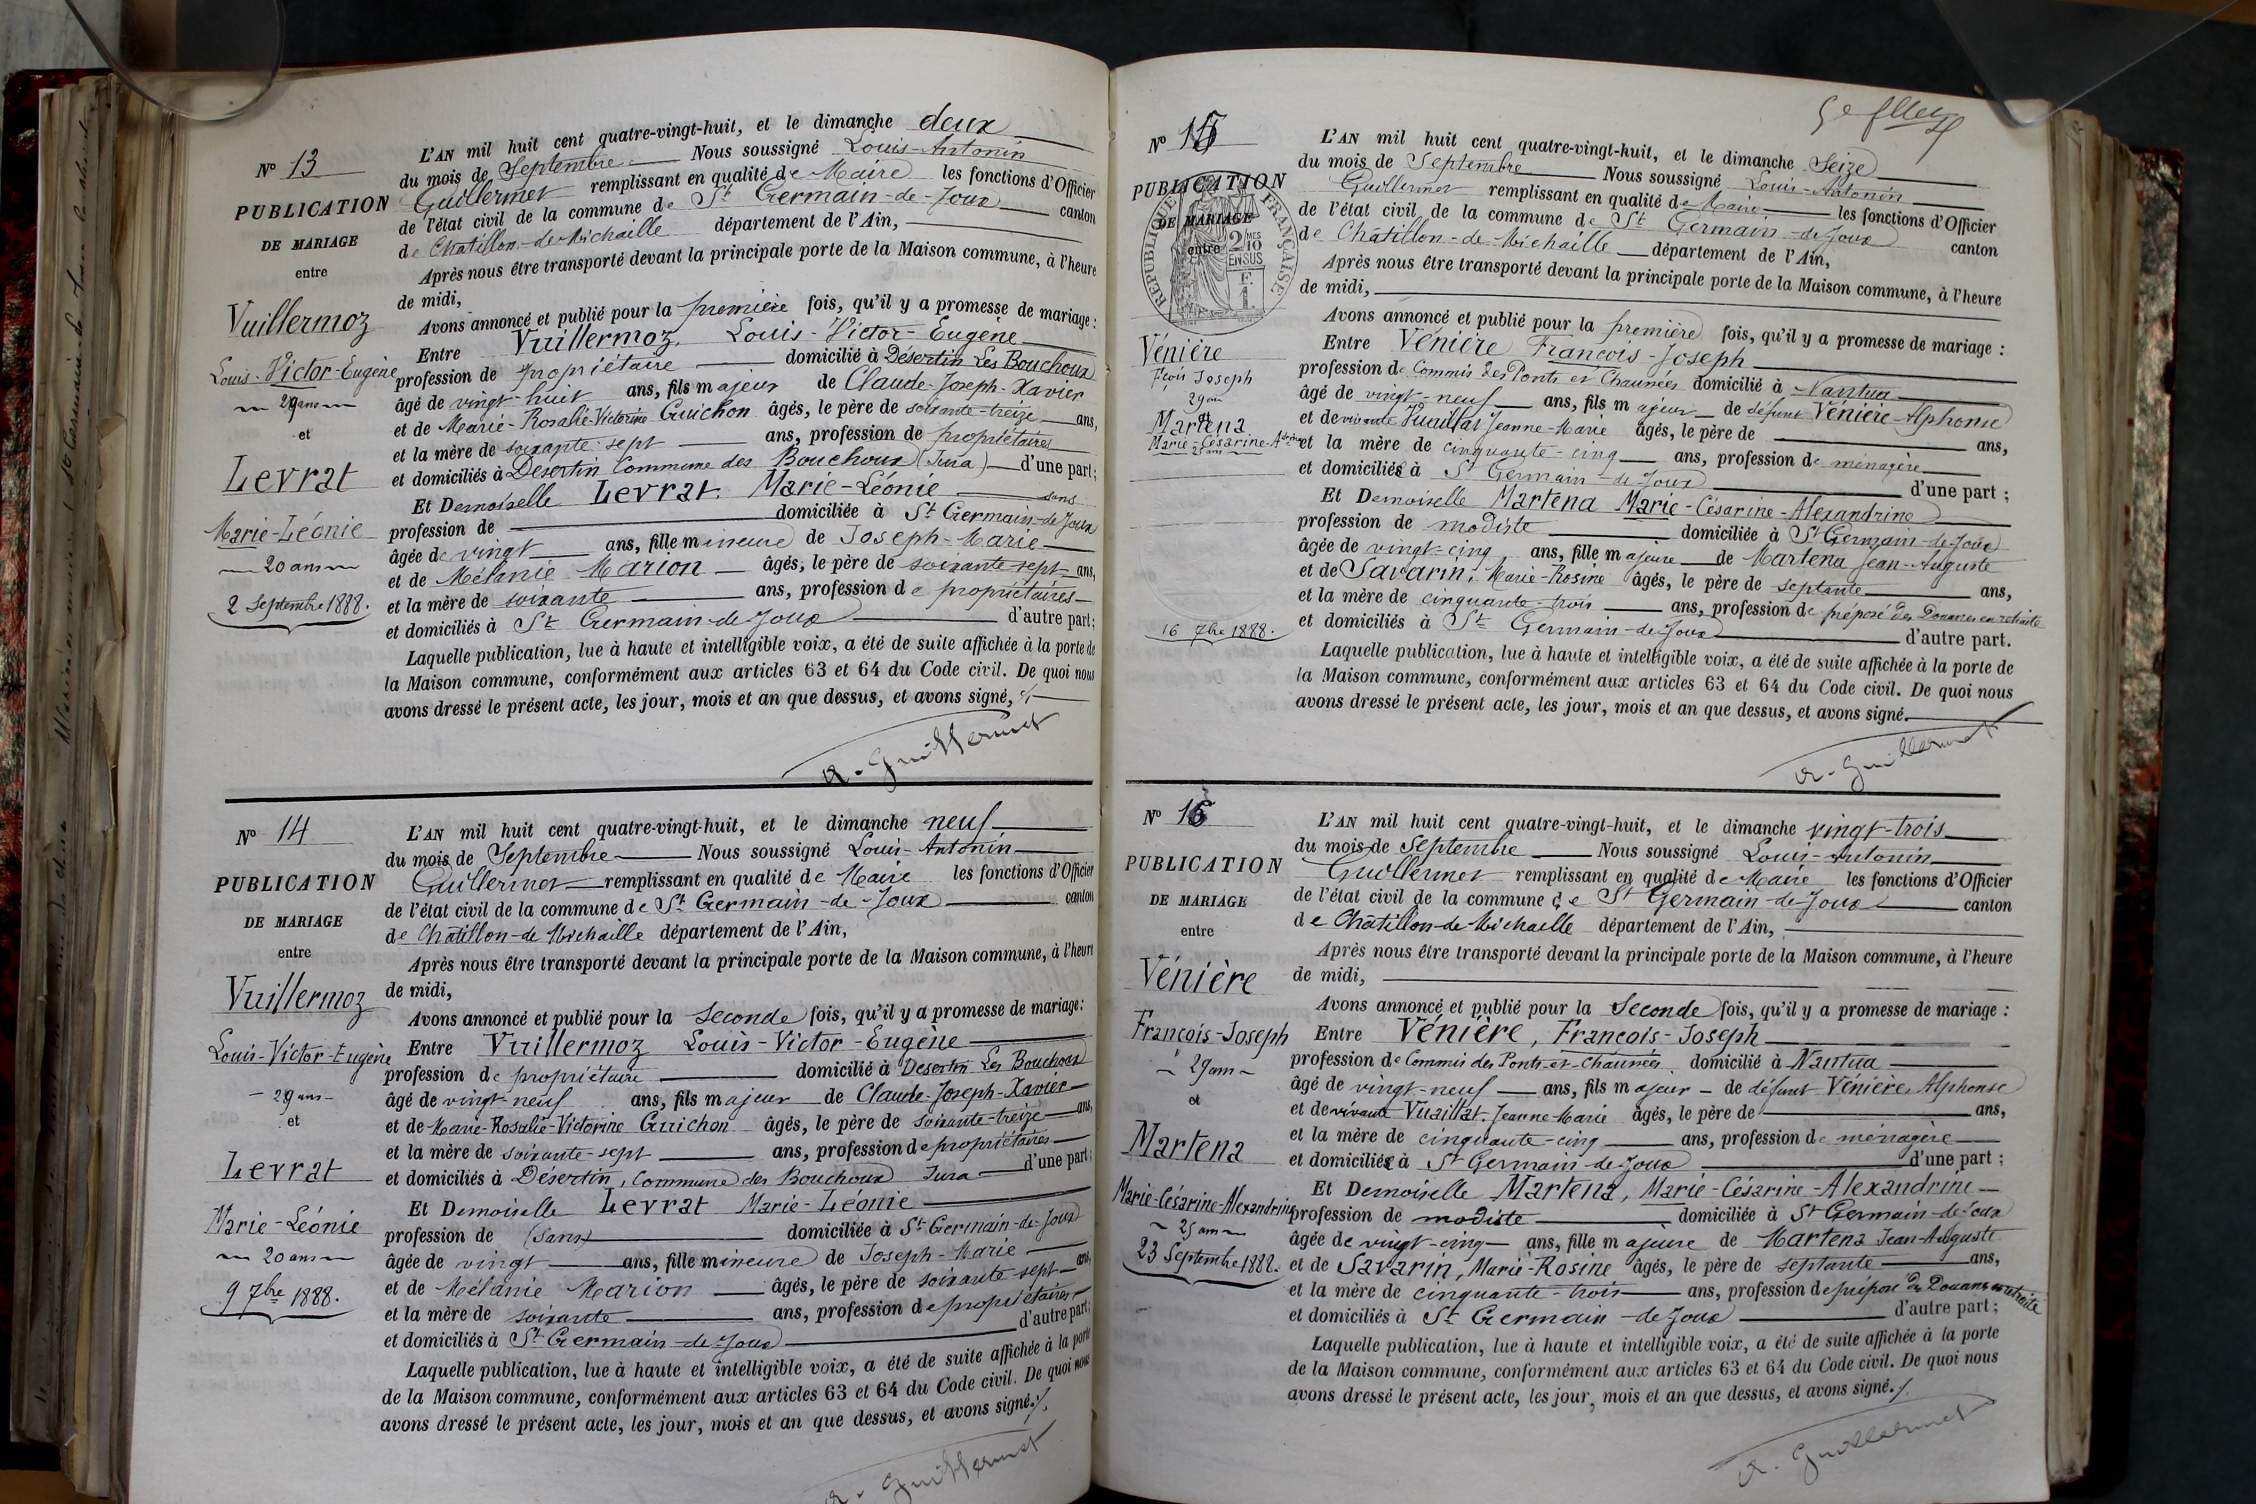 N° 13
PUBLICATION
DE MARIAGE
entre
Vuillermoz
Louis-Victor-Eugène
29 ans
et
Levrat
Marie-Léonie
20 ans
2 Septembre 1888.
L'AN mil huit cent quatre-vingt-huit, et le dimanche deux
du mois de Septembre Nous soussigné Louis-Antonin
Guillermet remplissant en qualité de Maire les fonctions d'Officier
de l'état civil de la commune de St Germain-de-Joux canton
de Chatillon-de-Michaille département de l'Ain,
Après nous être transporté devant la principale porte de la Maison commune, à l'heure
de midi,
Avons annoncé et publié pour la première fois, qu'il y a promesse de mariage :
Entre Vuillermoz, Louis-Victor-Eugène
profession de propriétaire domicilié à Désertin Les Bouchoux
âgé de vingt-huit ans, fils majeur de Claude-Joseph-Xavier
et de Marie-Rosalie-Victorine Guichon âgés, le père de soixante-treize ans,
et la mère de soixante-sept ans, profession de propriétaires
et domiciliés à Désertin Commune des Bouchoux (Jura) d'une part ;
Et Demoiselle Levrat Marie-Léonie sans
profession de domiciliée à St Germain-de-Joux
âgée de vingt ans, fille mineure de Joseph-Marie
et de Mélanie Marion âgés, le père de soixante sept ans,
et la mère de soixante ans, profession de propriétaires
et domiciliés à St Germain-de-Joux d'autre part ;
Laquelle publication, lue à haute et intelligible voix, a été de suite affichée à la porte de
la Maison commune, conformément aux articles 63 et 64 du Code civil. De quoi nous
avons dressé le présent acte, les jour, mois et an que dessus, et avons signé,
A. Guillermet
N° 14
PUBLICATION
DE MARIAGE
entre
Vuillermoz
Louis-Victor-Eugène
29 ans
et
Levrat
Marie-Léonie
20 ans
9 7bre 1888.
L'AN mil huit cent quatre-vingt-huit, et le dimanche neuf
du mois de Septembre Nous soussigné Louis-Antonin
Guillermet remplissant en qualité de Maire les fonctions d'Officier
de l'état civil de la commune de St Germain-de-Joux canton
de Chatillon-de Michaille département de l'Ain,
Après nous être transporté devant la principale porte de la Maison commune, à l'heure
de midi,
Avons annoncé et publié pour la Seconde fois, qu'il y a promesse de mariage :
Entre Vuillermoz Louis-Victor-Eugène
profession de propriétaire domicilié à Desertin Les Bouchoux
âgé de vingt-neuf ans, fils majeur de Claude-Joseph-Xavier
et de Marie-Rosalie-Victorine Guichon âgés, le père de soixante-treize ans,
et la mère de soixante-sept ans, profession de propriétaires
et domiciliés à Désertin, Commune des Bouchoux Jura d'une part ;
Et Demoiselle Levrat Marie-Léonie
profession de (Sans) domiciliée à St Germain-de-Joux
âgée de vingt ans, fille mineure de Joseph-Marie
et de Mélanie Marion âgés, le père de soixante sept ans,
et la mère de soixante ans, profession de propriétaires
et domiciliés à St Germain-de-Joux d'autre part ;
Laquelle publication, lue à haute et intelligible voix, a été de suite affichée à la porte
de la Maison commune, conformément aux articles 63 et 64 du Code civil. De quoi nous
avons dressé le présent acte, les jour, mois et an que dessus, et avons signé./.
A. Guillermet
5e
N° 15
PUBLICATION
DE MARIAGE
entre
REPUBLIQUE FRANÇAISE
2/10MES
EN SUS
F.
1.
Vénière
Fçois Joseph
29 ans
et
Martena
Marie-Césarine
25 ans
16 7bre 1888.
L'AN mil huit cent quatre-vingt-huit, et le dimanche Seize
du mois de Septembre Nous soussigné Louis-Antonin
Guillermet remplissant en qualité de Maire les fonctions d'Officier
de l'état civil de la commune de St Germain-de-Joux canton
de Châtillon-de-Michaille département de l'Ain,
Après nous être transporté devant la principale porte de la Maison commune, à l'heure
de midi,
Avons annoncé et publié pour la première fois, qu'il y a promesse de mariage :
Entre Vénière François-Joseph
profession de Commis des Ponts et Chaussées domicilié à Nantua
âgé de vingt-neuf ans, fils majeur de défunt Vénière Alphonse
et de vivante Vuaillat Jeanne-Marie âgés, le père de ans,
et la mère de cinquante-cinq ans, profession de ménagère
et domiciliée à St Germain-de-Joux d'une part ;
Et Demoiselle Martena Marie-Césarine-Alexandrine
profession de modiste domiciliée à St Germain-de-Joux
âgée de vingt-cinq ans, fille majeure de Martena Jean-Auguste
et de Savarin, Marie-Rosine âgés, le père de septante ans,
et la mère de cinquante-trois ans, profession de préposé des Douanes en retraite
et domiciliés à St Germain-de-Joux d'autre part.
Laquelle publication, lue à haute et intelligible voix, a été de suite affichée à la porte de
la Maison commune, conformément aux articles 63 et 64 du Code civil. De quoi nous
avons dressé le présent acte, les jour, mois et an que dessus, et avons signé.
A. Guillermet
N° 16
PUBLICATION
DE MARIAGE
entre
Vénière
François-Joseph
29 ans
et
Martena
Marie-Césarine-Alexandrine
25 ans
23 Septembre 1888.
L'AN mil huit cent quatre-vingt-huit, et le dimanche vingt-trois
du mois de Septembre Nous soussigné Louis-Antonin
Guillermet remplissant en qualité de Maire les fonctions d'Officier
de l'état civil de la commune de St Germain-de-Joux canton
de Châtillon-de-Michaille département de l'Ain,
Après nous être transporté devant la principale porte de la Maison commune, à l'heure
de midi,
Avons annoncé et publié pour la Seconde fois, qu'il y a promesse de mariage :
Entre Vénière, François-Joseph
profession de Commis des Ponts-et-Chaussées domicilié à Nantua
âgé de vingt-neuf ans, fils majeur de défunt Vénière Alphonse
et de vivante Vuaillat Jeanne-Marie âgés, le père de ans,
et la mère de cinquante-cinq ans, profession de ménagère
et domiciliée à St Germain-de-Joux d'une part ;
Et Demoiselle Martena, Marie-Césarine-Alexandrine
profession de modiste domiciliée à St Germain-de-Joux
âgée de vingt-cinq ans, fille majeure de Martena Jean-Auguste
et de Savarin, Marie-Rosine âgés, le père de septante ans,
et la mère de cinquante-trois ans, profession de préposé des Douanes en retraite
et domiciliés à St Germain-de-Joux d'autre part ;
Laquelle publication, lue à haute et intelligible voix, a été de suite affichée à la porte
de la Maison commune, conformément aux articles 63 et 64 du Code civil. De quoi nous
avons dressé le présent acte, les jour, mois et an que dessus, et avons signé./.
A. Guillermet